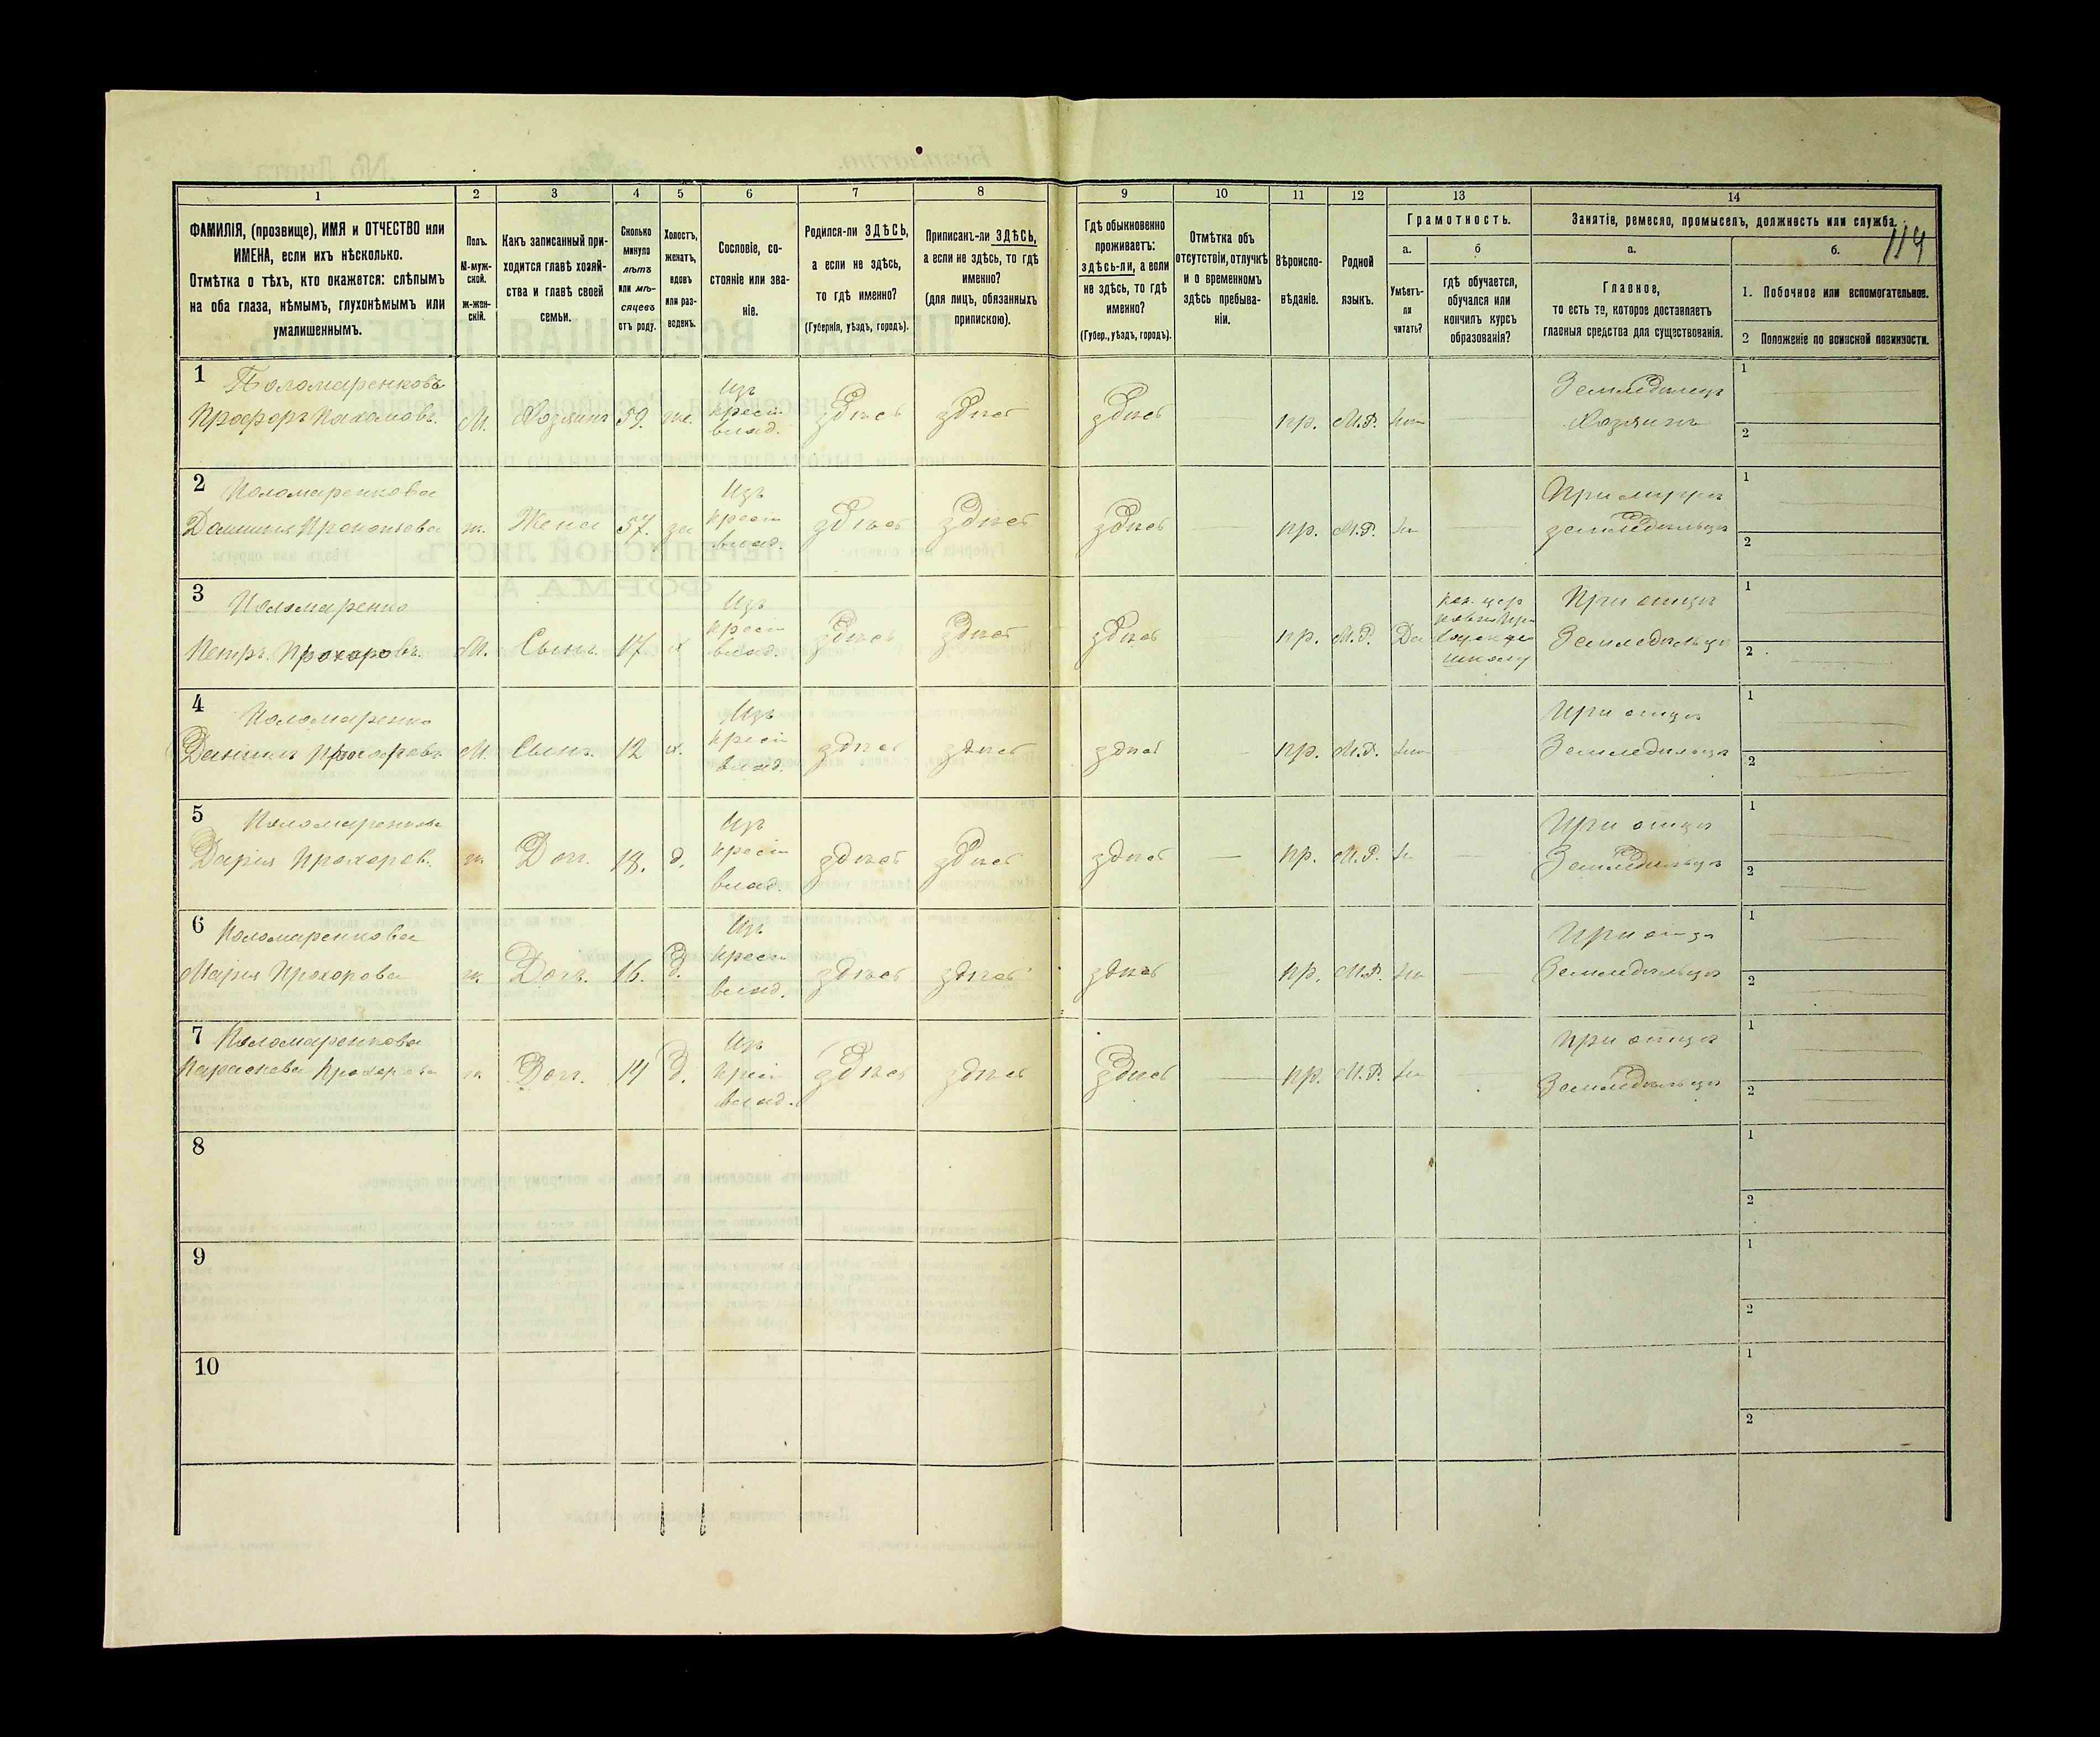 114
1
2
3
4
5
6
7
8
9
10
11
12
13
14
ФАМИЛІЯ, (прозвище), ИМЯ и ОТЧЕСТВО или
ИМЕНА, если ихъ нѣсколько.
Отмѣтка о тѣхъ, кто окажется: слѣпымъ
на оба глаза, нѣмымъ, глухонѣмымъ или
умалишеннымъ.
Полъ.
М-муж-
ской.
ж-жен-
скій.
Какъ записанный при-
ходится главѣ хозяй-
ства и главѣ своей
семьи.
Сколько
минуло
лѣтъ
или мѣ-
сяцевъ
отъ роду.
Холостъ,
женатъ,
вдовъ
или раз-
веденъ.
Сословіе, со-
стояніе или зва-
ніе.
Родился-ли ЗДѢСЬ,
а если не здѣсь,
то гдѣ именно?
(Губернія, уѣздъ, городъ).
Приписанъ-ли ЗДѢСЬ,
а если не здѣсь, то гдѣ
именно?
(для лицъ, обязанныхъ
припискою).
Гдѣ обыкновенно
проживаетъ:
здѣсь-ли, а если
не здѣсь, то гдѣ
именно?
(Губер., уѣздъ, городъ).
Отмѣтка объ
отсутствіи, отлучкѣ
и о временномъ
здѣсь пребыва-
ніи.
Вѣроиспо-
вѣданіе.
Родной
языкъ.
Грамотность.
а.
Умѣетъ-
ли
читать?
б
гдѣ обучается,
обучался или
кончилъ курсъ
образованія?
Занятіе, ремесло, промыселъ, должность или служба.
а.
Главное,
то есть то, которое доставляетъ
главныя средства для существованія.
б.
1. Побочное или вспомогательное.
2 Положеніе по воинской повинности.
1 Поломаренковъ
Прохоръ Пахомовъ.
М.
Хозяинъ
59.
же.
Изъ
крест
влад.
здѣсь
здѣсь
здѣсь
пр.
М.Р.
Нет
Земледѣлецъ
Хозяинъ
1
2
2 Поломаренкова
Прокопьева
ж.
Жена
57.
за
Изъ
крест
влад.
здѣсь
здѣсь
здѣсь
пр.
М.Р.
При мужѣ
земледѣльцѣ
1
2
3 Поломаренко
Петръ Прохоровъ.
М.
Сынъ
17
х
Изъ
крест
влад.
здѣсь
здѣсь
здѣсь
пр.
М.Р.
Да
школу
При отцѣ
Земледѣльцѣ
1
2
4 Поломаренко
Даніилъ Прохоровъ
М.
Сынъ.
12
х.
Изъ
крест
влад.
здѣсь
здѣсь
здѣсь
пр.
М.Р.
При отцѣ
Земледѣльцѣ
1
2
5 Поломаренкова
Дарія Прохоров.
ж.
Доч.
18.
д.
Изъ
крест
влад.
здѣсь
здѣсь
здѣсь
пр.
М.Р.
При отцѣ
Земледѣльцѣ
1
2
6 Поломаренкова
Марія Прохорова
ж.
Доч.
16.
д.
Изъ
крест
влад.
здѣсь
здѣсь
здѣсь
пр.
М.Р.
При отцѣ
Земледѣльцѣ
1
2
7 Поломаренкова
Параскева Прохорова
ж
Доч.
14
д.
Изъ
крест
влад.
здѣсь
здѣсь
здѣсь
пр.
М.Р.
При отцѣ
Земледѣльцѣ
1
2
8
1
2
9
1
2
10
1
2